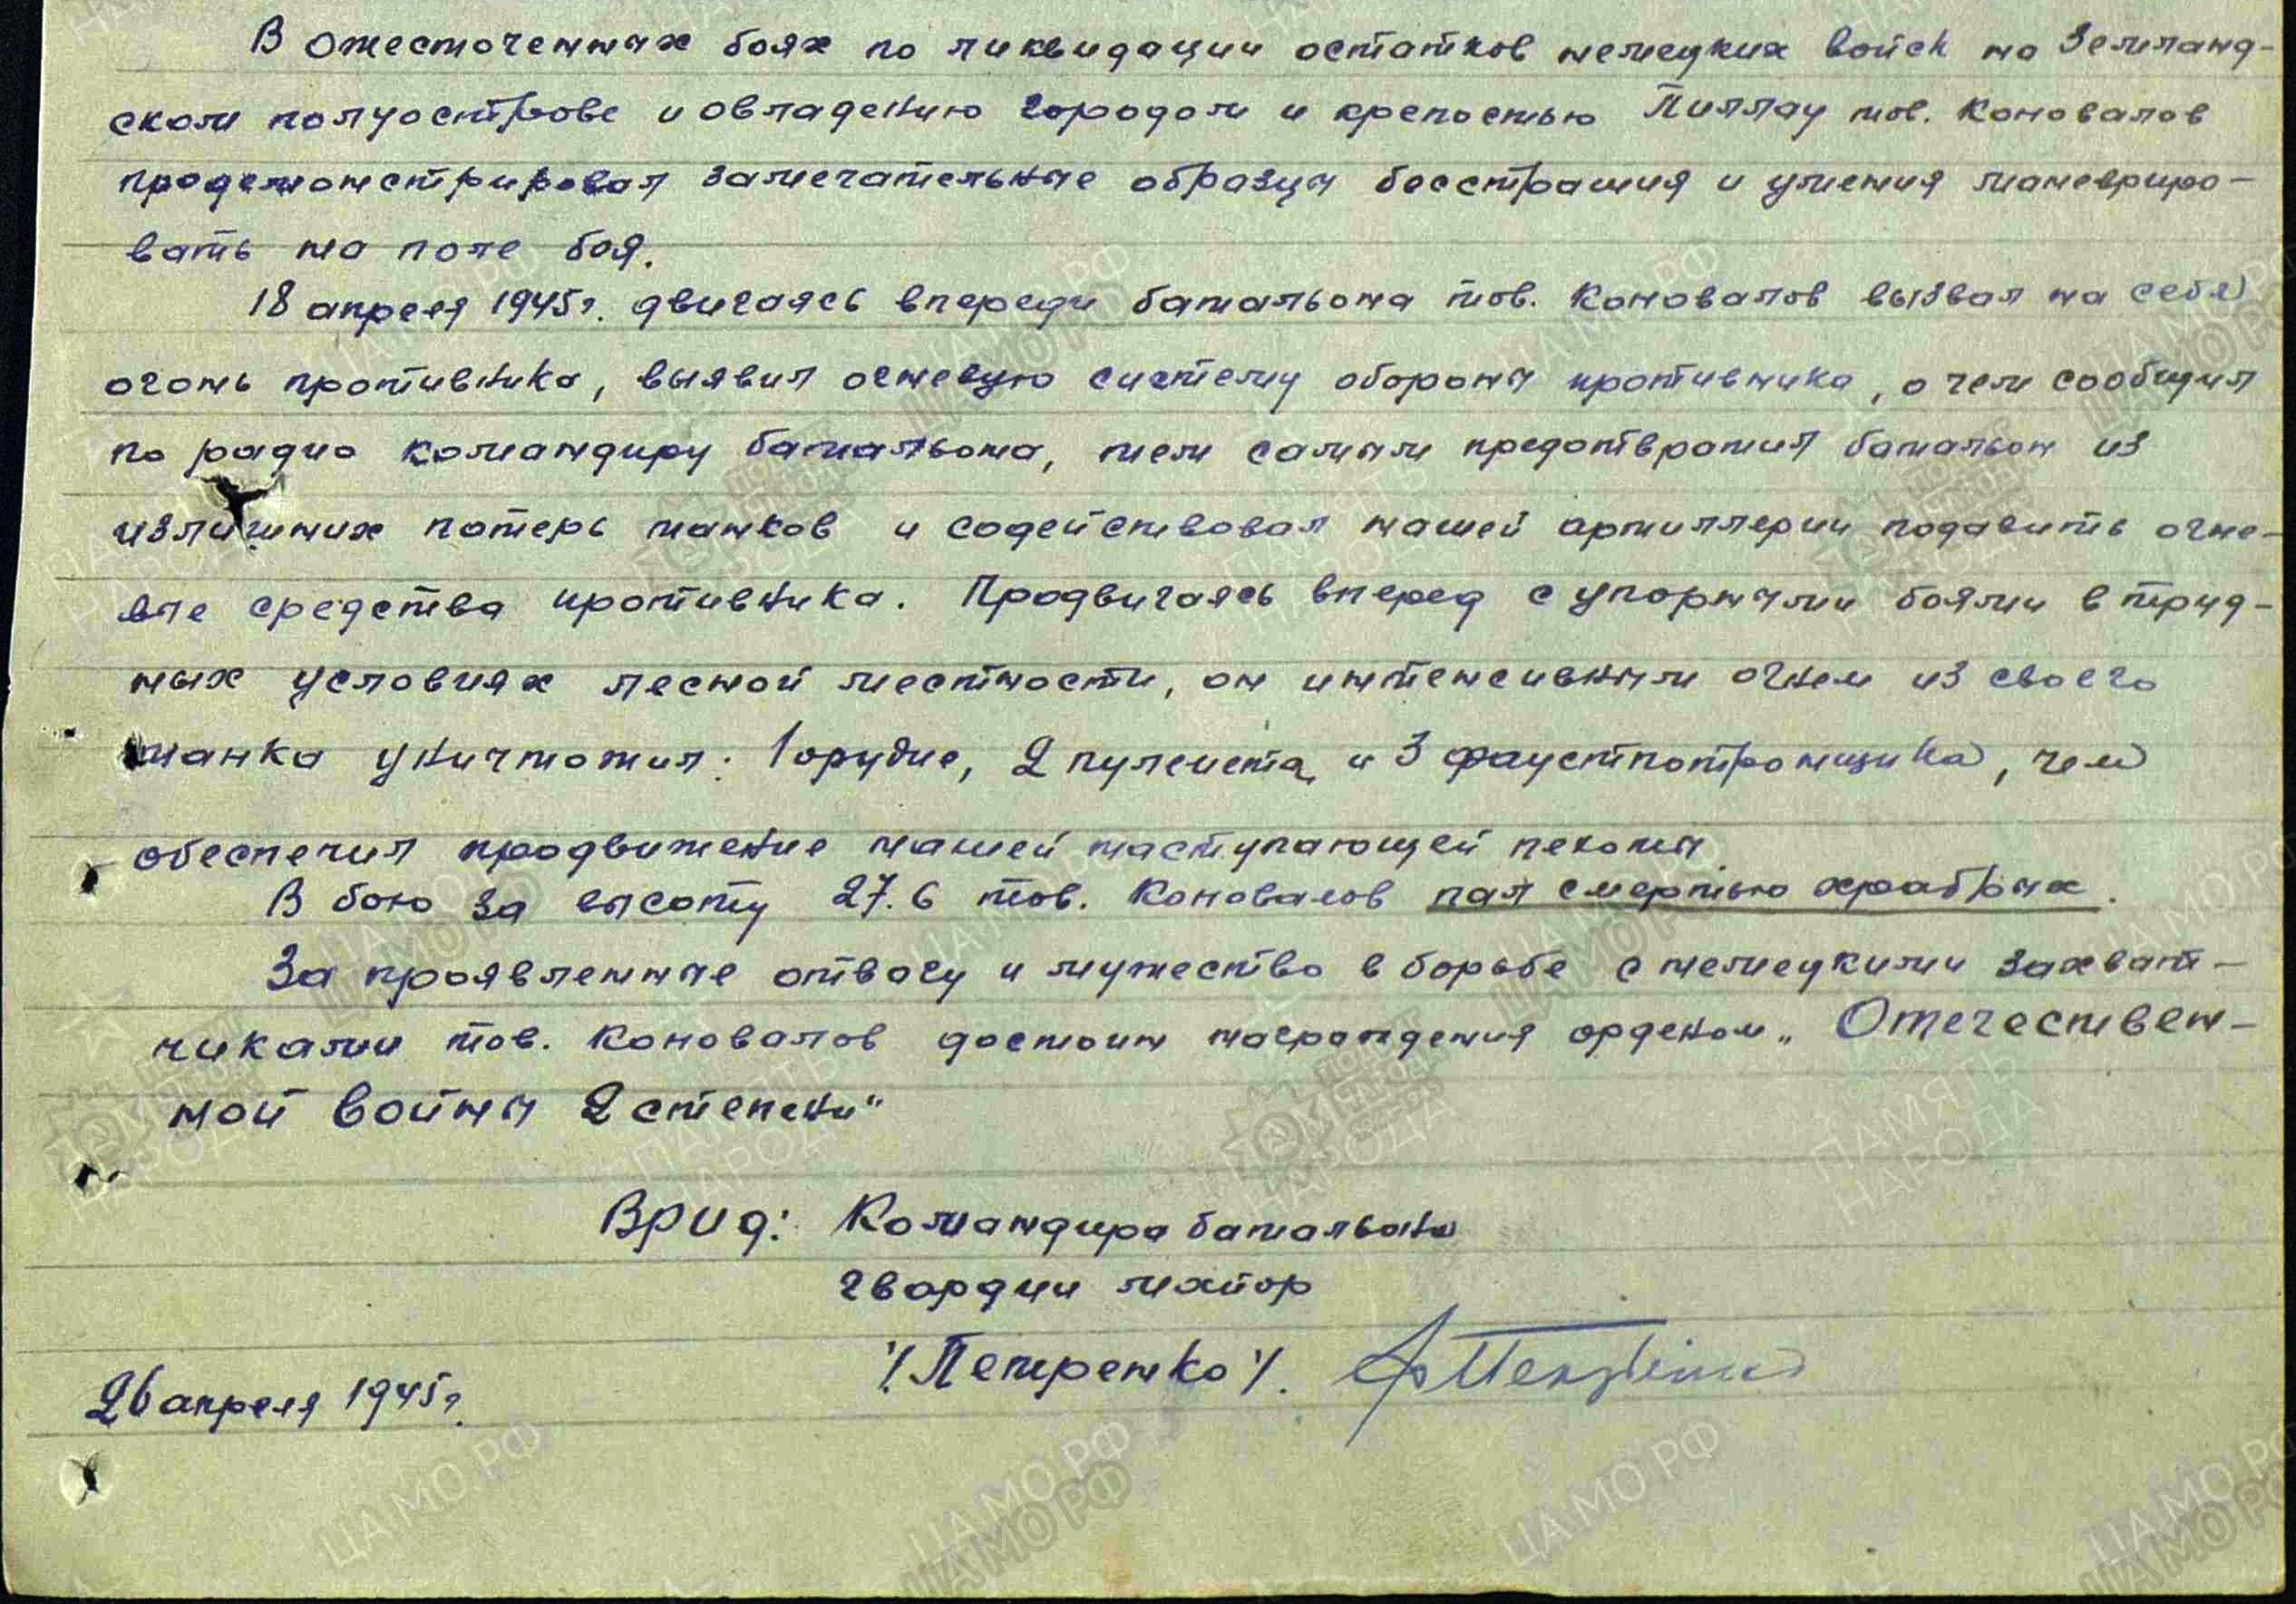 В ожесточенных боях по ликвидации остатков немецких войск на Земланд-
ском полуострове и овладению городом и крепостью Пиллау тов. Коновалов
продемонстрировал замечательные образцы бесстрашия и умения маневриро-
вать на поле боя.
18 апреля 1945г. двигаясь впереди батальона тов. Коновалов вызвал на себя
огонь противника, выявил огневую систему обороны противника, о чем сообщил
по радио командиру батальона, тем самым предотвратил батальон из
излишних потерь танков и содействовал нашей артиллерии подавить огне-
вые средства противника. Продвигаясь вперед с упорными боями в труд-
ных условиях лесной местности, он интенсивным огнем из своего
танка уничтожил: 1 орудие, 2 пулемета и 3 фаустпотронщика, чем
обеспечил продвижение нашей наступающей пехоты.
В бою за высоту 27.6 тов. Коновалов пал смертью храбрых.
За проявленные отвагу и мужество в борьбе с немецкими захват-
чиками тов. Коновалов достоин награждения орденом „Отечествен-
ной войны 2 степени"
Врид: Командира батальона
гвардии майор
/Петренко/.
26 апреля 1945г.
ЦАМО РФ
ПАМЯТЬ НАРОДА